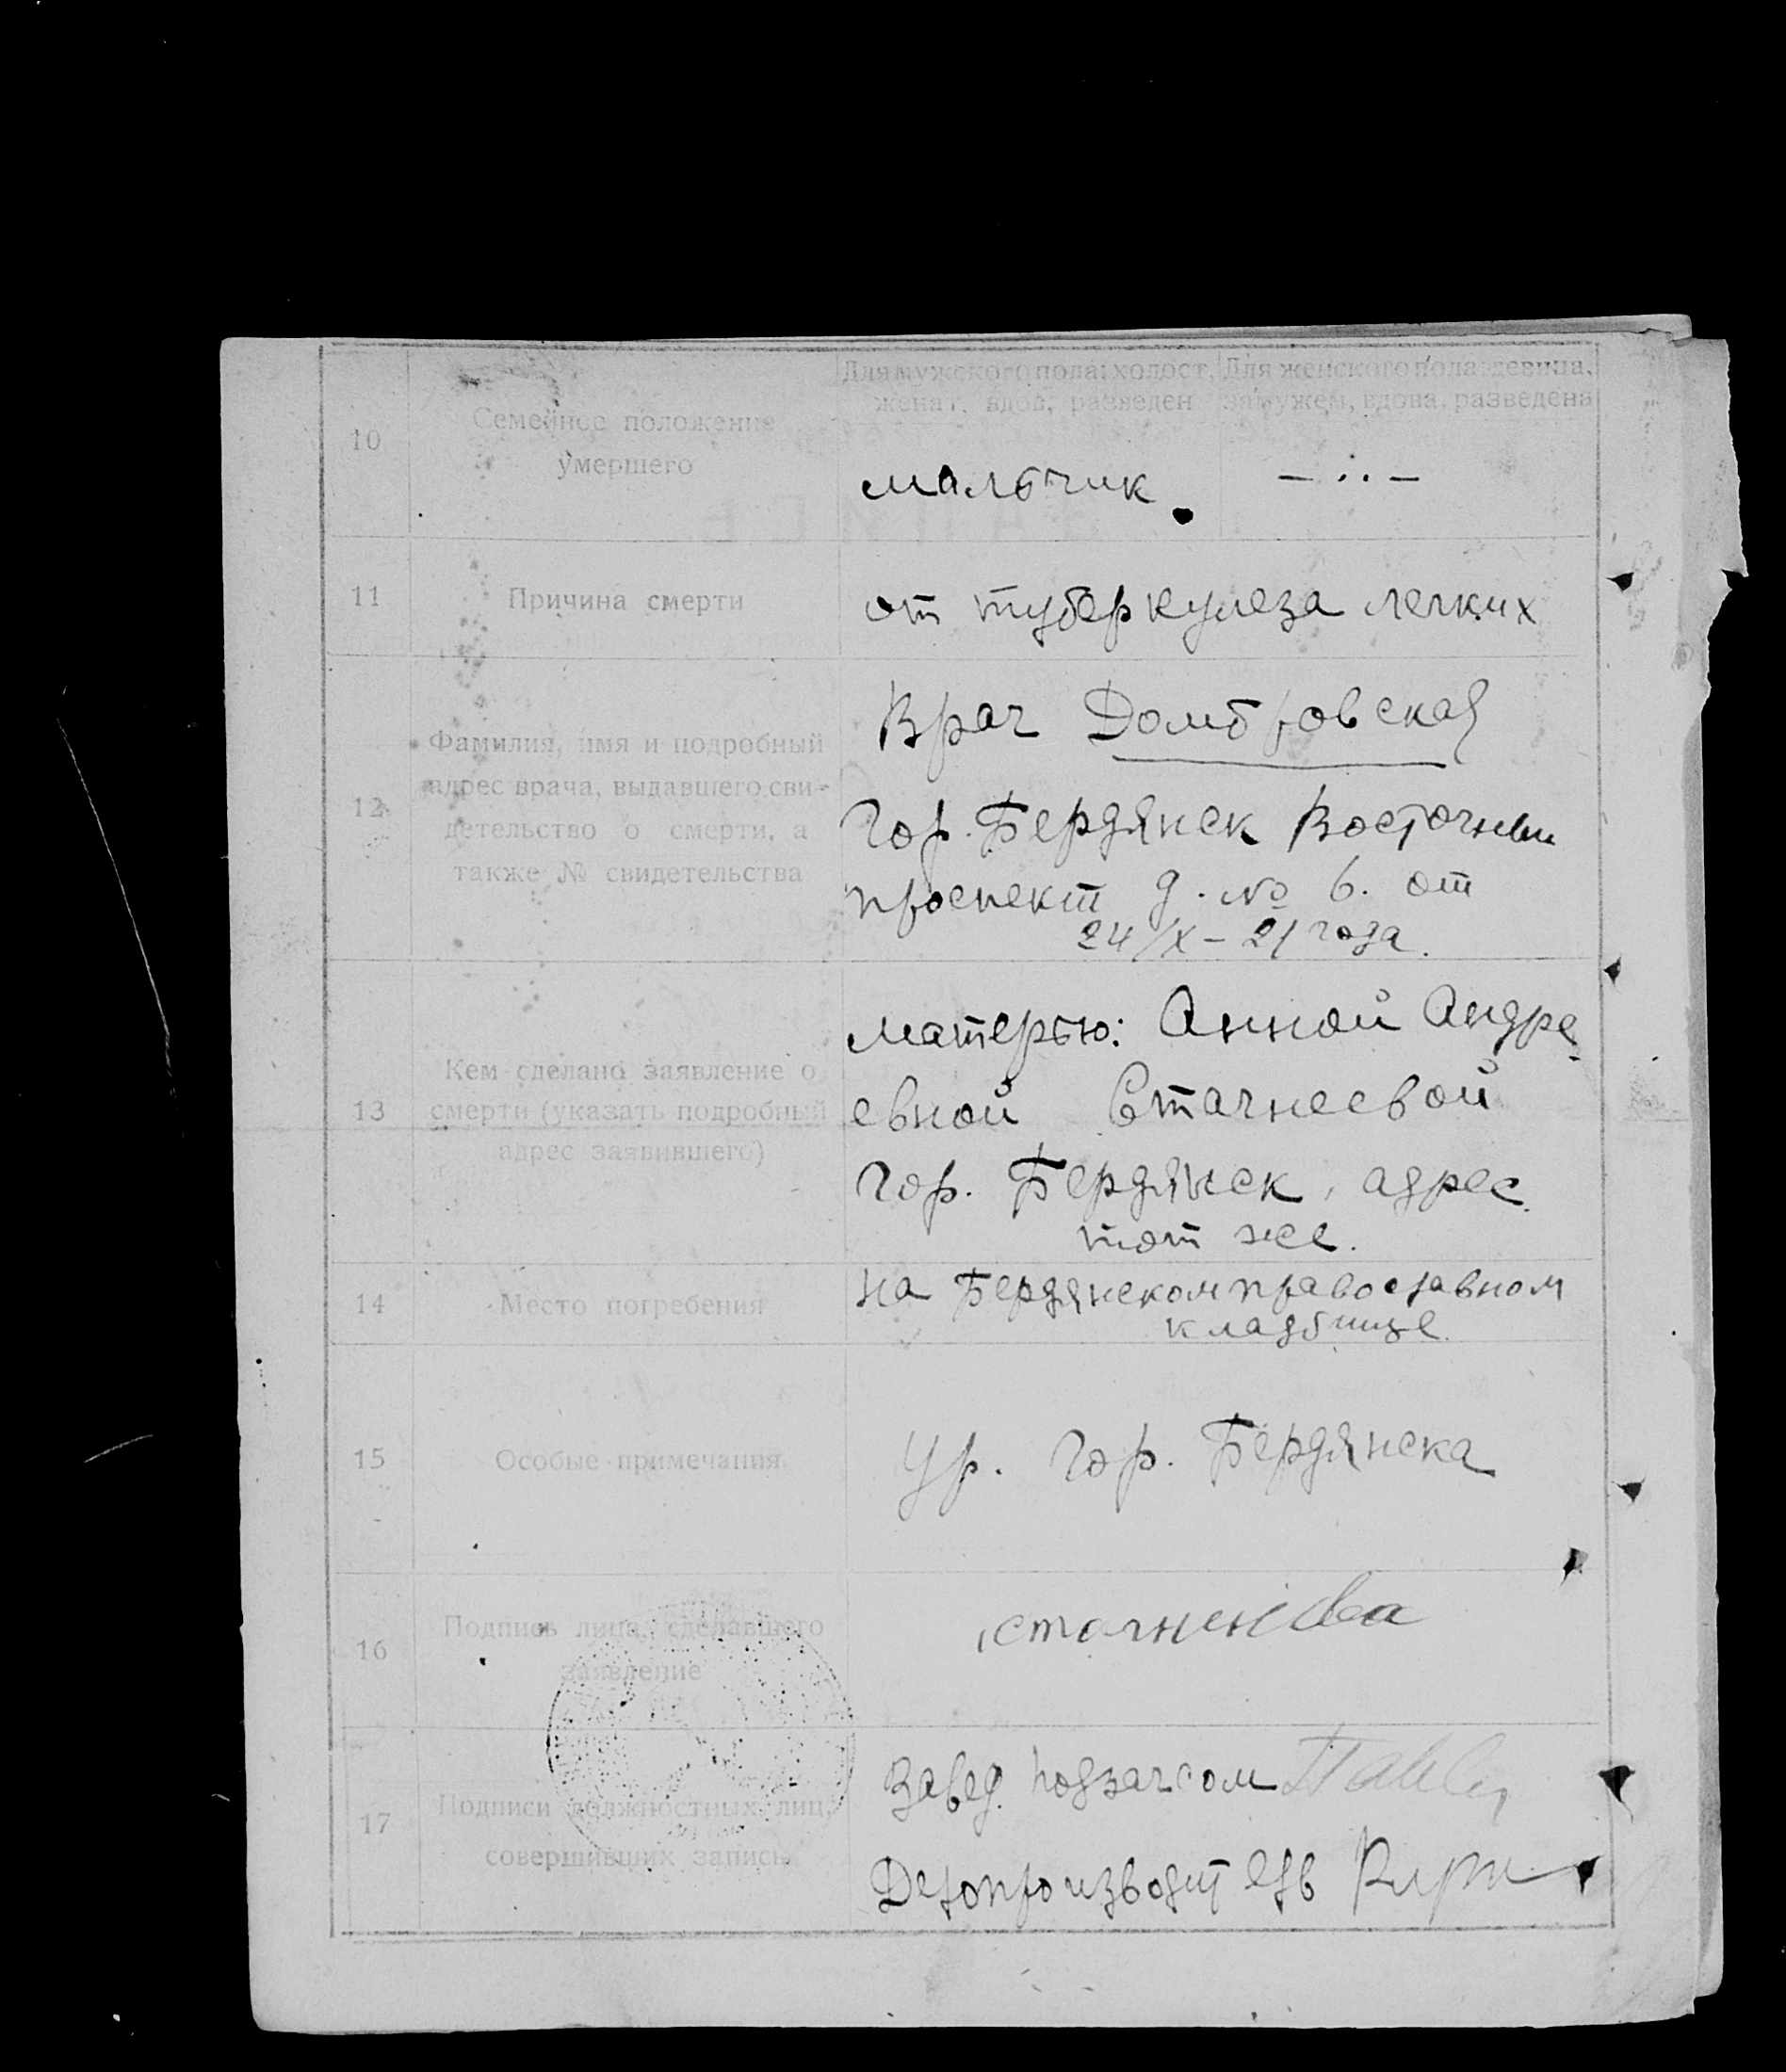 10
Семейное положение
умершего
Для мужского пола: холост,
женат, вдов, разведен
Для женского пола девица,
замужем, вдова, разведена
мальчик
11
Причина смерти
от туберкулеза легких
12
Фамилия, имя и подробный
адрес врача, выдавшего сви-
детельство о смерти, а
также № свидетельства
Врач Домбровская
Гор. Бердянск Восточный
проспект д. № 6. от
24/X – 21 года.
13
Кем сделано заявление о
смерти (указать подробный
адрес заявившего)
матерью: Анной Андре
евной
Гор. Бердянск, адрес
тот же.
14
Место погребения
на Бердянском православном
кладбище.
15
Особые примечания
Ур. гор. Бердянска
16
Подпись лица, сделавшего
заявление
17
Подписи должностных лиц,
совершивших запись
Завед. подзагсом
Делопроизводитель